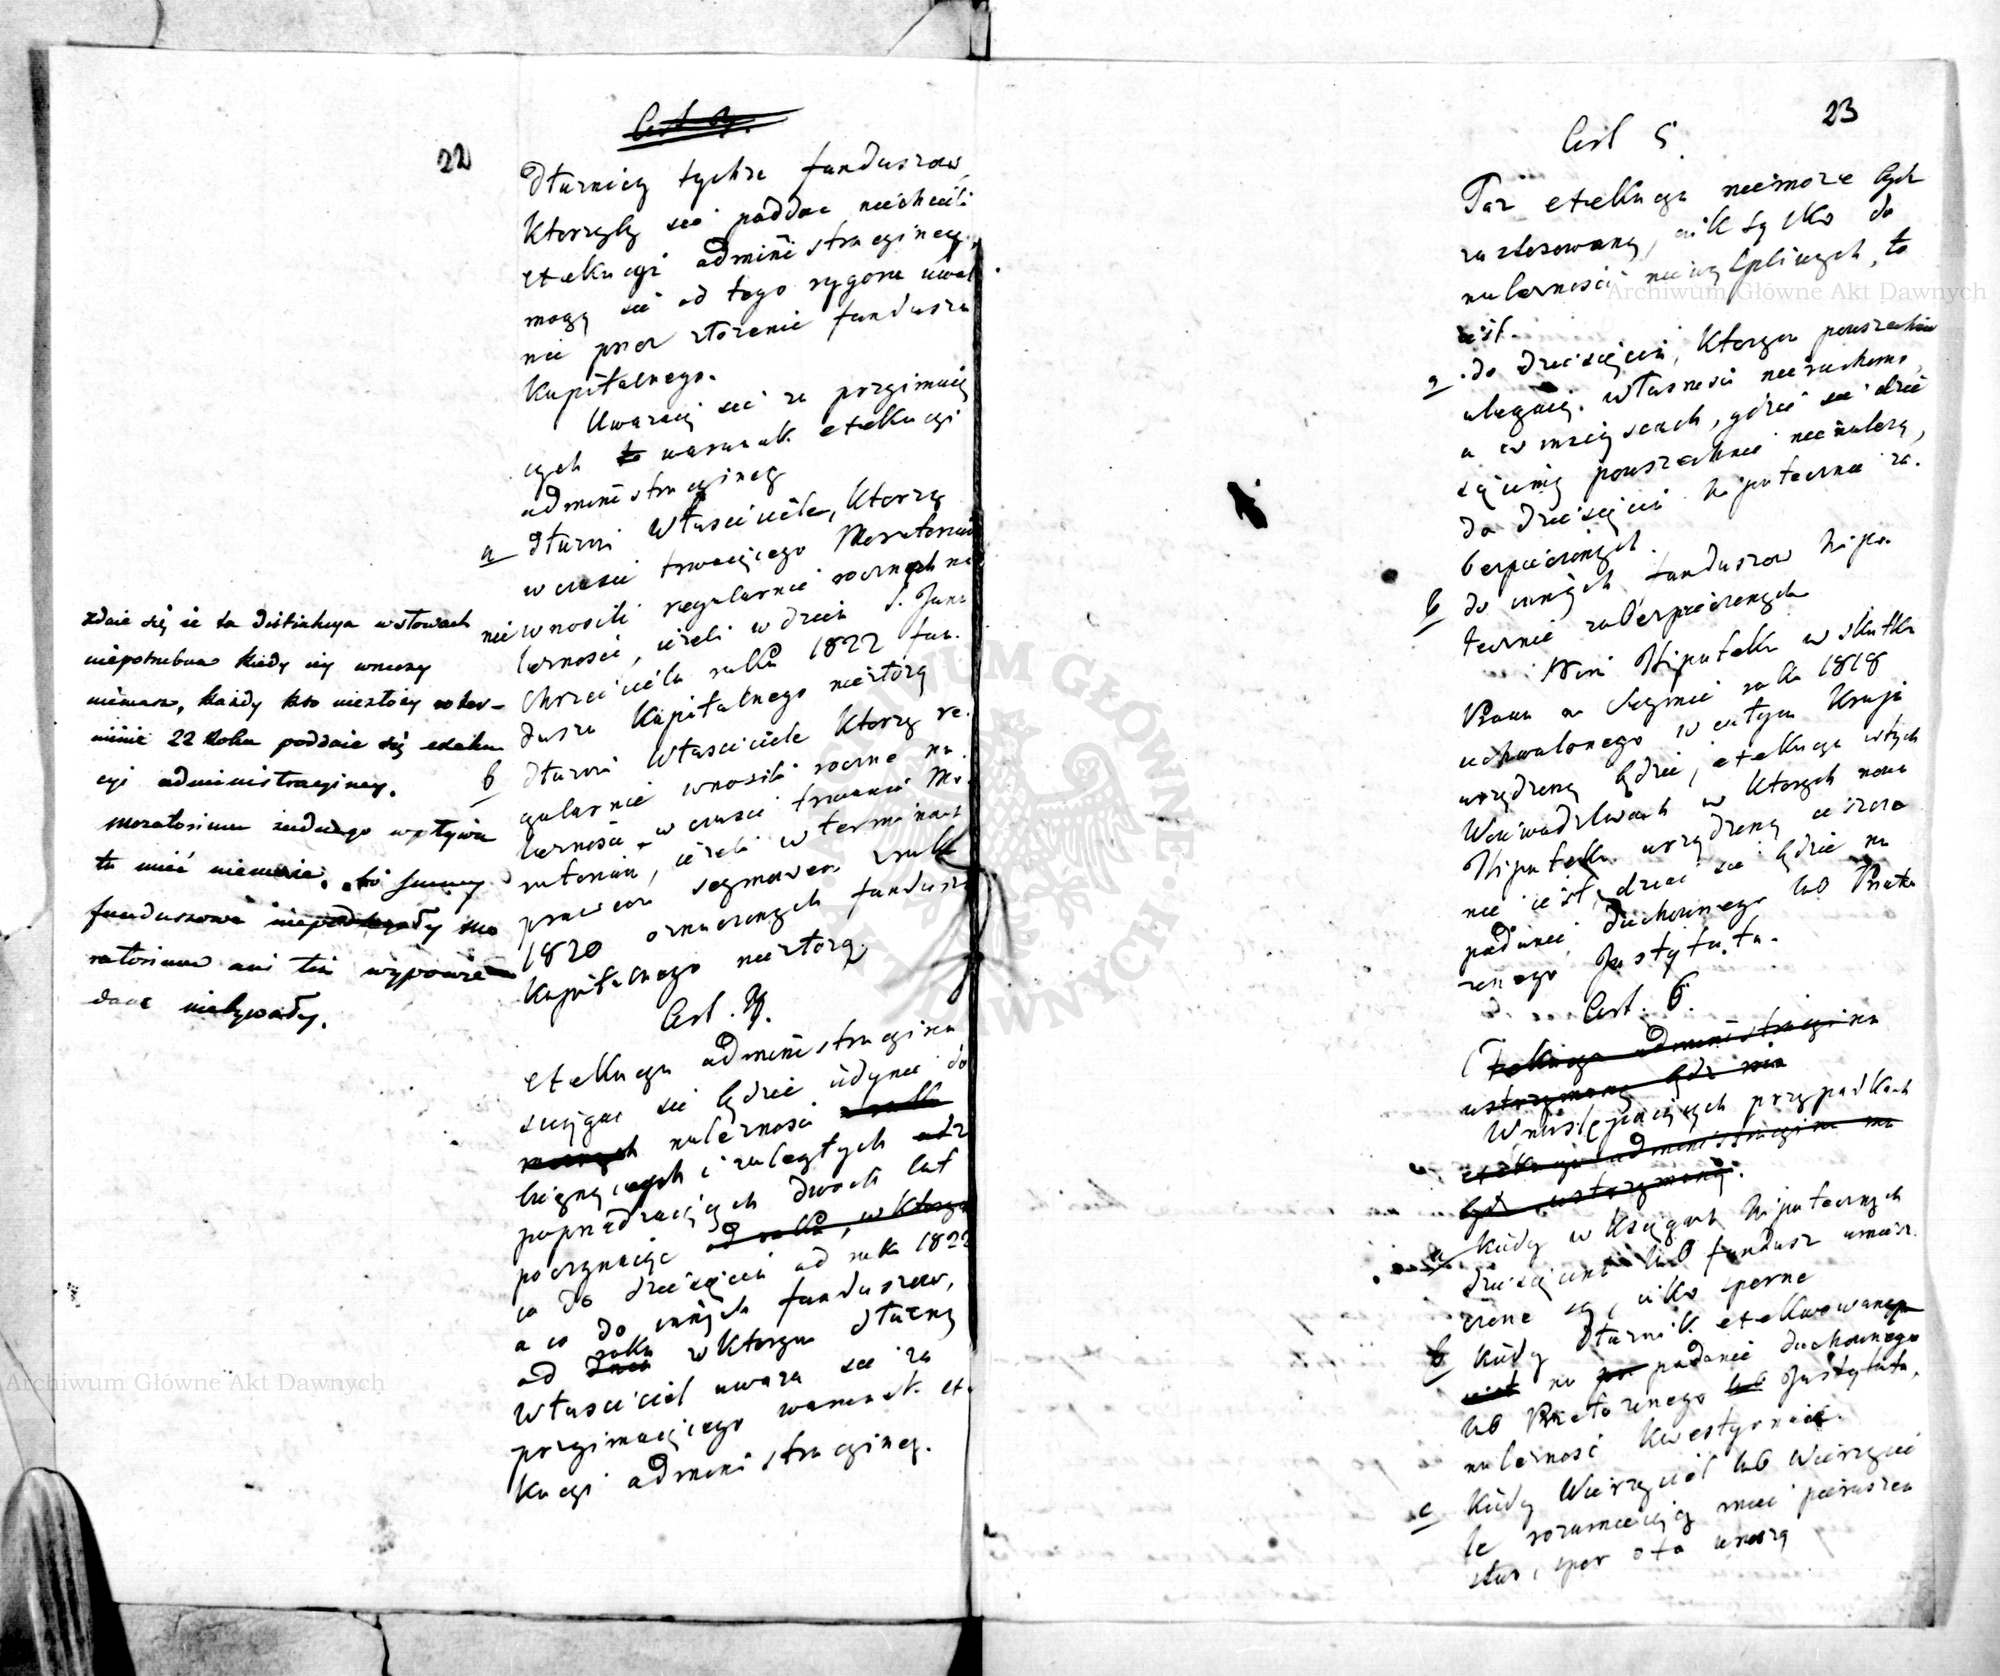 22
Art 3.
Dłużnicy tychże funduszow,
Ktorzyby się poddac niechcieli
exekucyi administracyiney,
mogą się od tego rygoru uwol
nic przez złożenie funduszu
Kapitalnego.
Uważaią się za przyimuią
cych to warunek exekucyi
administracyiney
a dłużni Właściciele, Ktorzy
w czasie trwaiącego Moratorium
nie wnosili regularnie rocznych na
leżności, ieżeli w dzień S. Jana
Chrzciciela roku 1822 fun.
duszu Kapitalnego niezłożą
b dłużni Właściciele Ktorzy re.
gularnie wnosili roczne na.
leżności w czasie trwania Mo.
ratorium, ieżeli w terminach
prawem seymowem z roku
1820 oznaczonych funduszu
Kapitalnego niezłożą.
zdaie się że ta distinkcya w słowach
niepotrzebna kiedy iey w rzeczy
niemasz, każdy kto niezłoży w ter-
minie 22 Roku poddaie się exeku
cyi administracyiney.
Moratorium żadnego wpływu
tu mieć niemoże, bo summy
funduszowe niepodlegały mo
ratorium ani też wypowie
dane niebywały.
Art. 4.
exekucya administracyina
sciągac się będzie iedynie do
rocznych należności
bieżących i zaległych
poprzedzaiących dwoch lat
poczynaiąc od roku, w Ktorym
co do dziesięcin od roku 1822
a co do innych funduszow,
od roku w Ktorym dłużny
Właściciel uważa się za
przyimuiącego warunek ex.
kucyi administracyiney.
23
Art 5.
Taż exekucya niemoże bydz
zastosowaną, iak tylko do
należności niewątpliwych, to
iest.
a do dziesięcin, Ktorym powszechnie
ulegaią własności nieruchome,
a w mieyscach, gdzie się dzie
sięciny powszechnie nienależą,
do dziesięcin hipotecznie za.
bezpieczonych.
b do innych funduszow hipo
tecznie zabezpieczonych
Nim Hipoteka w skutku
Prawa na Seymie roku 1818
uchwalonego w całym Kraju
urządzoną będzie, exekucya w tych
Woiewodztwach w Ktorych nowa
Hipoteka urządzoną ieszcze
nie iest, dziać się będzie na
podanie duchownego lub Przeło
żonego Instytutu.
Art. 6.
Exekucya administracyina
wstrzymaną będzie
W następuiących przypadkach
exekucya administracyina ma
bydz wstrzymaną.
a Kiedy w Księgach hipotecznych
dziesięcina lub fundusz umiesz.
czone są, iako sporne
b Kiedy dłużnik exekwowany
na podanie duchownego
lub Przełożonego lub Instytutu,
należność kwestyonuie.
c Kiedy Wierzyciel lub Wierzycie
le rozumieiący mieć pierwszen
stwo, spor o to wniosą